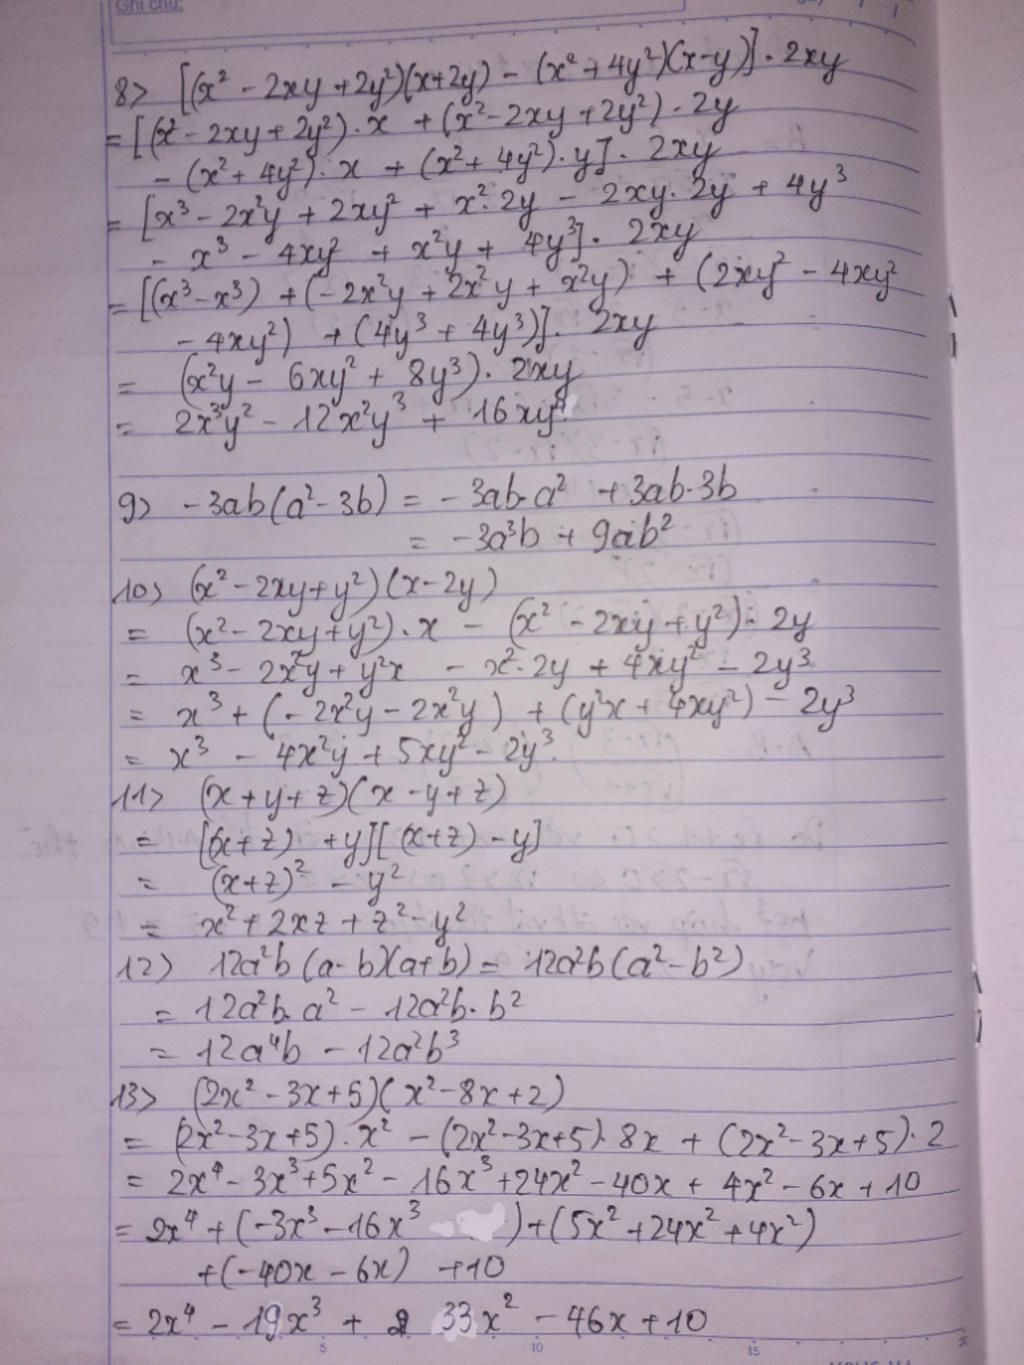 Ghi chú:
8> [(x² - 2xy + 2y²)(x+2y) - (x² + 4y²)(x-y)] · 2xy
= [(x² - 2xy + 2y²) · x + (x² - 2xy + 2y²) · 2y
- (x² + 4y²) · x + (x² + 4y²) · y] · 2xy
= [x³ - 2x²y + 2xy² + x² · 2y - 2xy · 2y + 4y³
- x³ - 4xy² + x²y + 4y³] · 2xy
= [(x³ - x³) + (-2x²y + 2x²y + x²y) + (2xy² - 4xy²
- 4xy²) + (4y³ + 4y³)] · 2xy
= (x²y - 6xy² + 8y³) · 2xy
= 2x³y² - 12x²y³ + 16xy⁴
9> -3ab(a² - 3b) = -3ab · a² + 3ab · 3b
= -3a³b + 9ab²
10> (x² - 2xy + y²)(x - 2y)
= (x² - 2xy + y²) · x - (x² - 2xy + y²) · 2y
= x³ - 2x²y + y²x - x² · 2y + 4xy² - 2y³
= x³ + (-2x²y - 2x²y) + (y²x + 4xy²) - 2y³
= x³ - 4x²y + 5xy² - 2y³.
11> (x + y + z)(x - y + z)
= [(x + z) + y][(x + z) - y]
= (x + z)² - y²
= x² + 2xz + z² - y²
12> 12a²b(a - b)(a + b) = 12a²b(a² - b²)
= 12a²b · a² - 12a²b · b²
= 12a⁴b - 12a²b³
13> (2x² - 3x + 5)(x² - 8x + 2)
= (2x² - 3x + 5) · x² - (2x² - 3x + 5) · 8x + (2x² - 3x + 5) · 2
= 2x⁴ - 3x³ + 5x² - 16x³ + 24x² - 40x + 4x² - 6x + 10
= 2x⁴ + (-3x³ - 16x³ ) + (5x² + 24x² + 4x²)
+ (-40x - 6x) + 10
= 2x⁴ - 19x³ + 33x² - 46x + 10
5 10 15 20